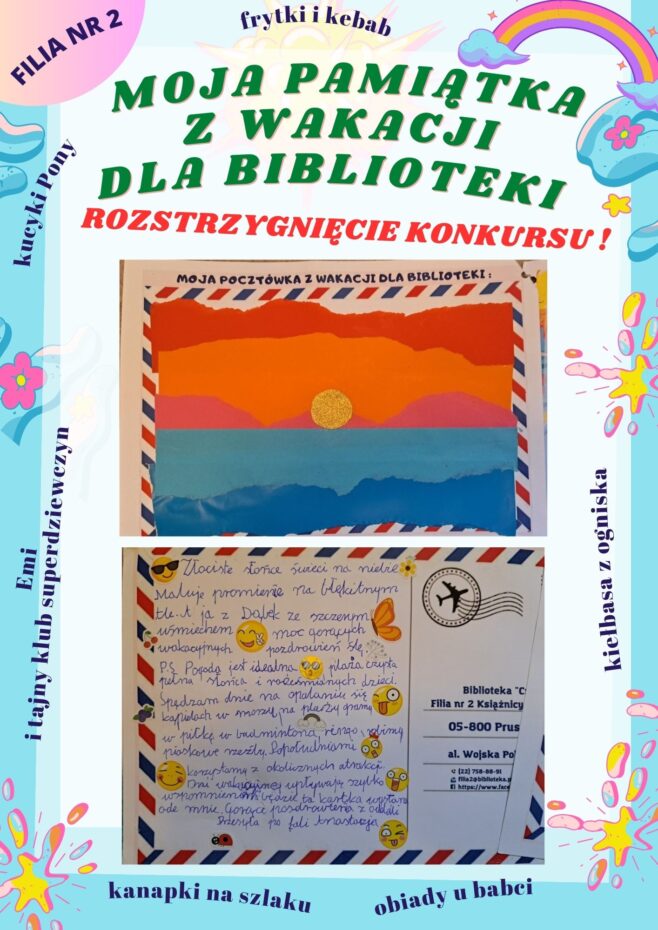 FILIA NR 2
frytki i kebab
MOJA PAMIĄTKA
Z WAKACJI
DLA BIBLIOTEKI
ROZSTRZYGNIĘCIE KONKURSU !
kucyki Pony
MOJA POCZTÓWKA Z WAKACJI DLA BIBLIOTEKI :
Emi
i tajny klub superdziewczyn
kiełbasa z ogniska
Złociste słońce świeci na niebie
Maluje promienie na błękitnym
tle. I ja z Dąbek ze szczerym
uśmiechem moc gorących
wakacyjnych pozdrowień ślę.
P.S. Pogoda jest idealna plaża czysta
pełna słońca i roześmianych dzieci.
Spędzam dnie na opalaniu się
kąpielach w morzu, na plaży gramy
w piłkę w badmintona, robimy
piaskowe rzeźby. Popołudniami
korzystamy z okolicznych atrakcji.
Dni wakacyjne upływają szybko
wspomnieniem będzie ta kartka wysłana
ode mnie. Gorące pozdrowienia z oddali
Przesyła po fali Anastazja
Biblioteka "C
Filia nr 2 Książnicy
05-800 Prus
al. Wojska Po
(22) 758-88-91
filia2@biblioteka.p
https://www.face
kanapki na szlaku
obiady u babci